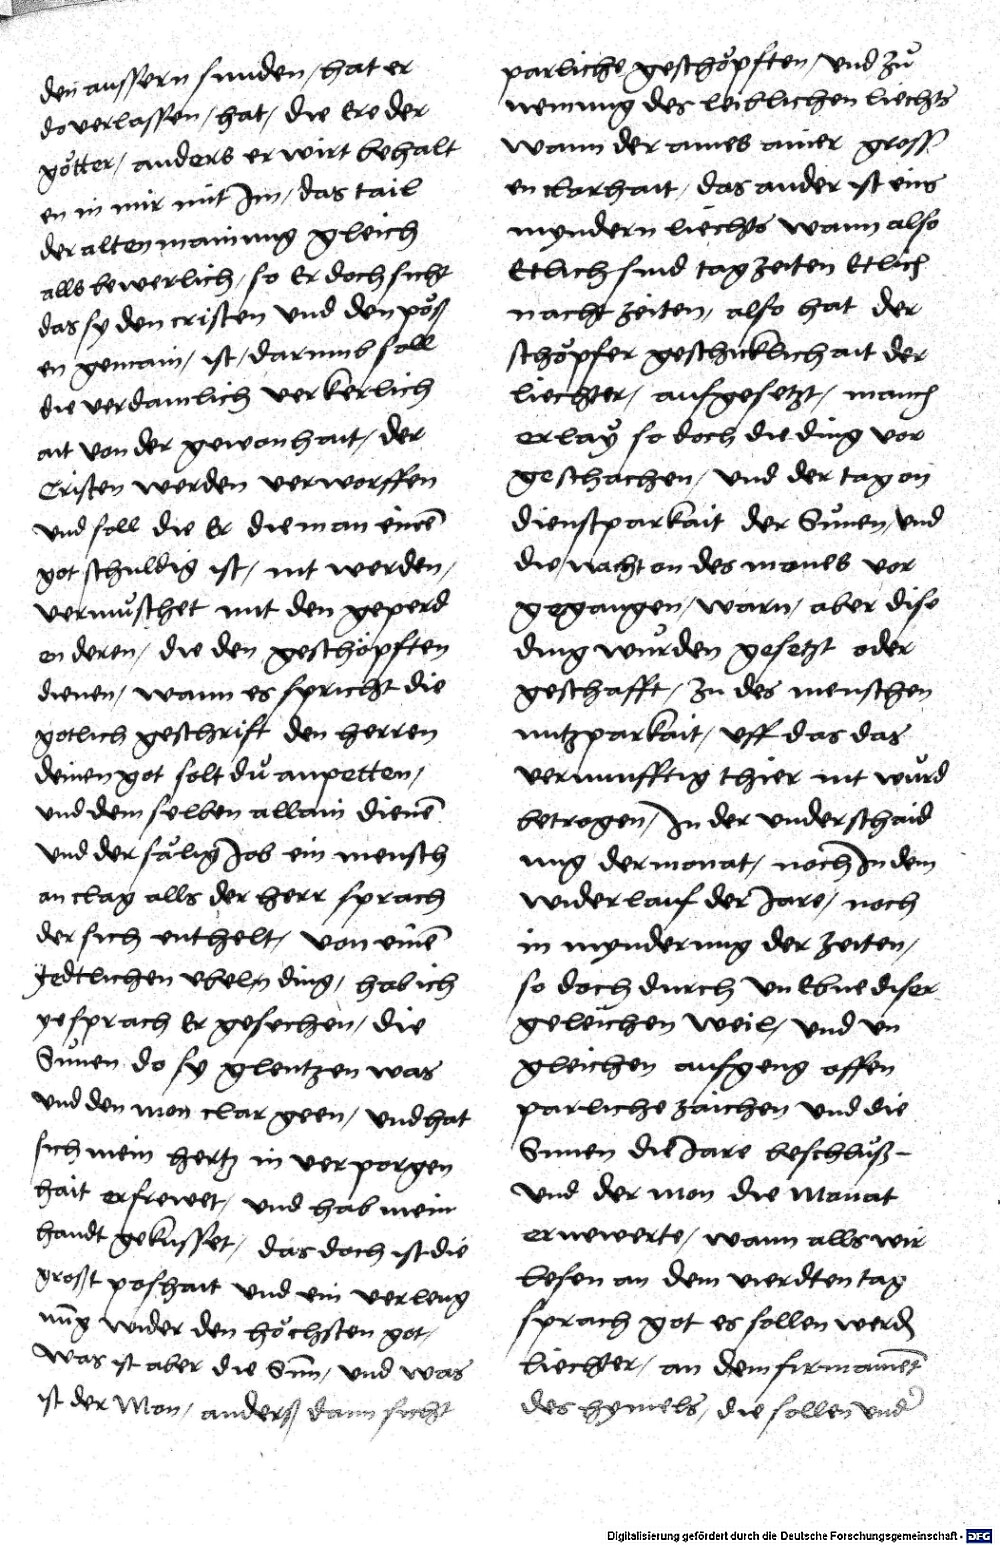 den aussern sunden / hat er
do verlassen / hat / die Ere der
götter / anders er wirt behalt
en in mir mit Im / das tail
der alten mainung gleich
alls bewerlich / so Er doch sicht
das sy den cristen und den pöß
en gemain / ist / darumb soll
die verdamlich verkerlich
ait von der gewonhait / der
Cristen werden verworffen
und soll die Er die man einē
got schuldig ist / nit werden /
vermuͦschet mit den geperd
en deren / die den geschöpften
dienen / wann es spricht die
gotlich geschrift den herren
deinen got solt duͦ anpetten /
und dem selben allain dienē
und der säligJob ein mensch
an clag alls der herr sprach
der sich enthelt / von einē
Jedtlichen ubeln ding / hab ich
yesprach Er gesechen / die
Sunen do sy glentzen was
und den mon clar geen / und hat
sich mein hertz in verporgen
hait erfrewet / und hab mein
handt gekusset / das doch ist die
großt poshait und ein verleug
nūg wider den höchsten got /
Was ist aber die Sūn / und was
ist der Mon / anderß dann sicht
parliche geschöpften / und zuͦ
nemung des leiblichen liechts
wann der aines ainer gross
en clarhait / das ander ist eins
myndern liechts wann also
Etlich sind tagzeiten Etlich
nacht zeiten / also hat der
schöpfer geschicklichait der
liechter / aufgesetzt / manch
erlaÿ so doch die ding vor
geschachen / und der tag on
dienstparkait der Suͦnen / und
die nacht on des mones vor
gegangen / warn / aber dise
ding wuͦrden gesetzt oder
geschafft / zu des menschen
nutzparkait / uff das das
vernunfftig thier nit wuͦrd
betrogen / In der underschaid
ung der monat / noch In dem
widerlauf der Jare / noch
in mynderung der zeiten /
so doch durch un Ebne diser
geleichen weil / und un
gleichen aufgeng offen
parliche zaichen und die
Sunen die Jare beschluͦß-
und der mon die Monat
ernewerte / wann alls wir
lesen an dem vierdten tag
sprach got es sollen werdē
liechter / an dem firmamēt
des hymels / die sollen und
Digitalisierung gefördert durch die Deutsche Forschungsgemeinschaft - DFG